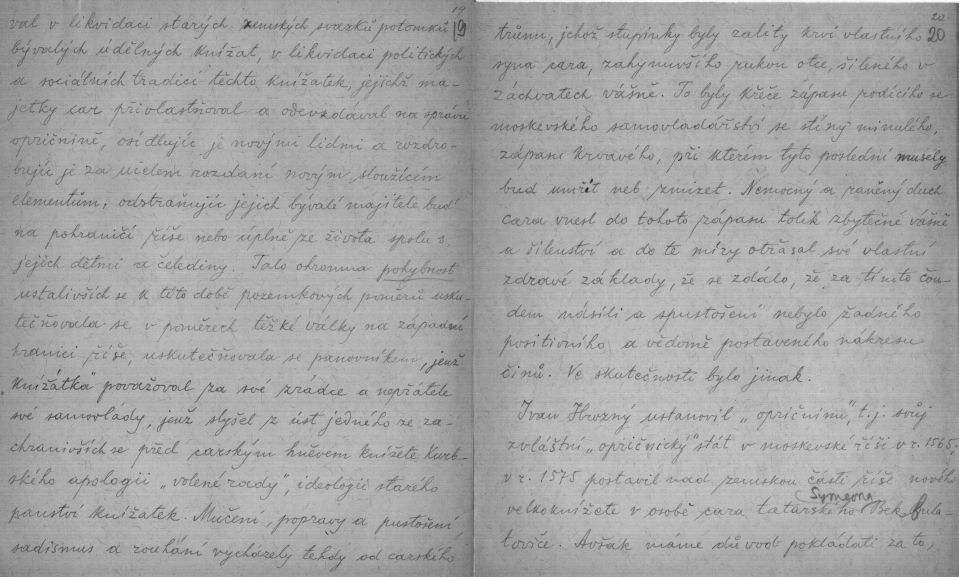 19
val v likvidaci starých zemských svazků potomků 19
bývalých údělných knížat, v likvidaci politických
a sociálních tradicí těchto knížatek, jejichž ma-
jetky car přivlastňoval a odevzdával na správu
opričnině, osídlujíc je novými lidmi a rozdro-
bujíc je za účelem rozdaní novým sloužícím
elementům, odstraňujíc jejich bývalé majitele buď
na pohraničí říše nebo úplně ze života spolu s
jejich dětmi a čeledíny. Tato ohromna pohybnost
ustalivších se k této době pozemkových poměrů usku-
tečňovala se v poměrech těžké války na západní
hranici říše, uskutečňovala se panovníkem, jenž
"knížátka" považoval za své zrádce a nepřátele
své samovlády, jenž slyšel z úst jedného ze za-
chranivších se před carským hněvem knížete Kurb-
ského apologii "volené rady", ideologii starého
panství knížatek. Mučení, popravy a pustošení,
sadismus a rouhání vycházely tehdy od carského
20
trůnu, jehož stupínky byly zality krví vlastního 20
syna cara, zahynuvšího rukou otce, šíleného v
záchvatech vášně. To byly křeče zápasu rodícího se
moskevského samovladářství se stíny minulého,
zápasu krvavého, při kterém tyto poslední musely
bud umřít neb zmizet. Nemocný a raněný duch
cara vnesl do tohoto zápasu tolik zbytečné vášně
a šílenství a do té míry otřásal své vlastní
zdravé základy, že se zdálo, že za tímto čou-
dem násilí a spustošení nebylo žádného
positivního a vědomě postaveného nákresu
činů. Ve skutečnosti bylo jinak.
Ivan Hrozný ustanovil "opričninu", t.j. svůj
zvláštní "opričnický" stát v moskevské říši v r. 1565,
v r. 1575 postavil nad zemskou částí říše nového
Symeona
velkoknížete v osobě cara tatarského Bek-Bula-
toviče. Avšak máme důvod pokládati za to,